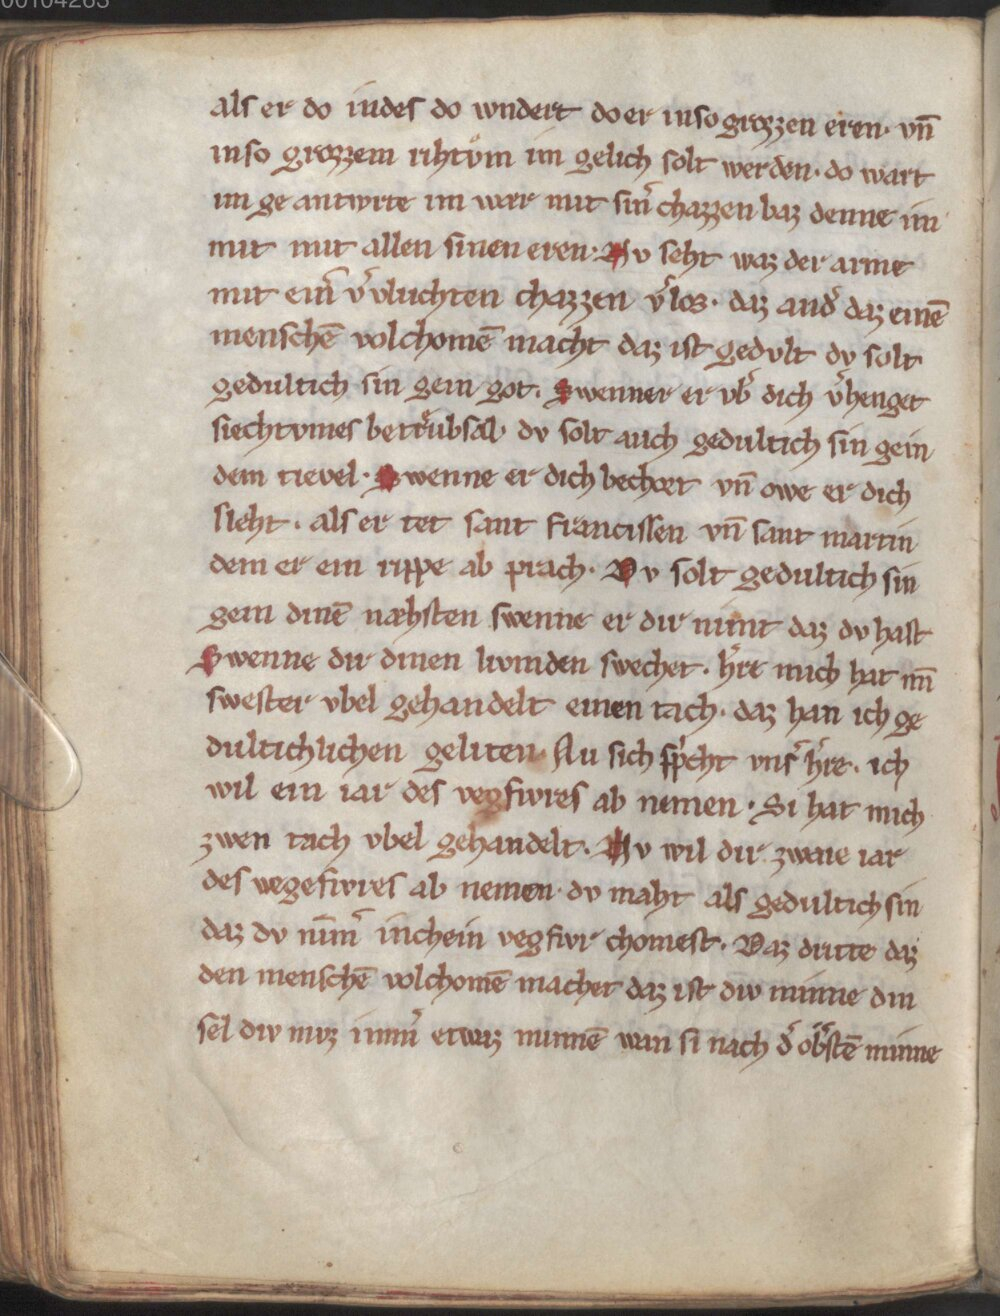 00104263
als er do iudes do wndert do er in so grozzen eren· vn̄
in so grozzem rihtvͦm im gelich solt werden· do wart
im ge antwrte im wer mit sin̾ chazzen baz denne im
mit mit allen sinen eren· Nv seht waz der arme
mit eim̾ v̾vluchten chazzen v̾los· daz and̾ daz einē
menschē volchomē macht daz ist gedvlt dv solt
gedultich sin gein got. Swenner er vb̾ dich v̾henget
siechtvmes betrvͤbsal· dv solt auch gedultich sin gein
dem tievel· Swenne er dich bechort vn̄ owe er dich
sleht · als er tet sant francissen vn̄ sant martin
dem er ein rippe ab prach· Dv solt gedultich sin
gein dinē næhsten swenne er dir nimt daz dv hast
Swenne dir dinen livmden swechet · h̾re mich hat mī
swester vbel gehandelt einen tach· daz han ich ge
dultichlichen geliten· Nu sich sp̾cht vns̾ h̾re· ich
wil ein iar des vegfivres ab nemen · Si hat mich
zwen tach vbel gehandelt. Nv wil dir zwene iar
des vegefivres ab nemen· dv maht als gedultich sin
daz dv nim̄̾ in chein vegfivr chomest· Daz dritte daz
den menschē volchomē machet daz ist div minne din
sel div mvz imm̾ etwaz minnē wan si nach d̾ ob̾stē minne